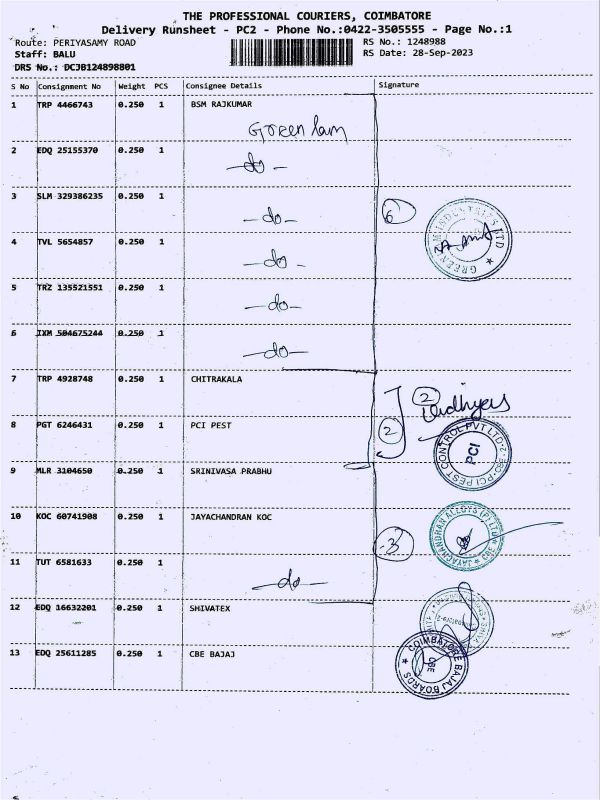 THE PROFESSIONAL COURIERS, COIMBATORE
Delivery Runsheet - PC2 - Phone No.:0422-3505555 - Page No.:1
Route: PERIYASAMY ROAD RS No.: 1248988
Staff: BALU RS Date: 28-Sep-2023
DRS No.: DCJB124898801
S No Consignment No Weight PCS Consignee Details Signature
1 TRP 4466743 0.250 1 BSM RAJKUMAR
Green lam
2 EDQ 25155370 0.250 1
-do-
3 SLM 329386235 0.250 1
-do- 6
4 TVL 5654857 0.250 1
-do-
5 TRZ 135521551 0.250 1
-do-
6 IXM 504675244 0.250 1
-do-
7 TRP 4928748 0.250 1 CHITRAKALA
2
8 PGT 6246431 0.250 1 PCI PEST
2 PCI PEST CONTROL PVT LTD
PCI
9 MLR 3104650 0.250 1 SRINIVASA PRABHU
10 KOC 60741908 0.250 1 JAYACHANDRAN KOC
3 JAYACHANDRAN ALLOYS (P) LTD CBE
11 TUT 6581633 0.250 1
-do-
12 EDQ 16632201 0.250 1 SHIVATEX
13 EDQ 25611285 0.250 1 CBE BAJAJ
COIMBATORE BAJAJ BOARDS
CBE